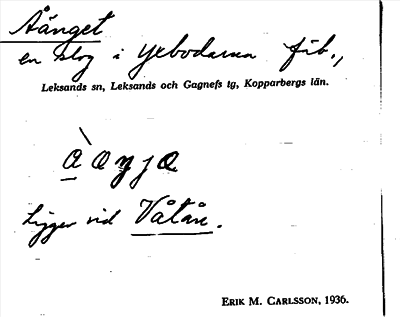 Åänget
en skog i Yxbodarna fäb.,
Leksands sn, Leksands och Gagnefs tg, Kopparbergs län.
Ligger vid Våtån.
ERIK M. CARLSSON, 1936.